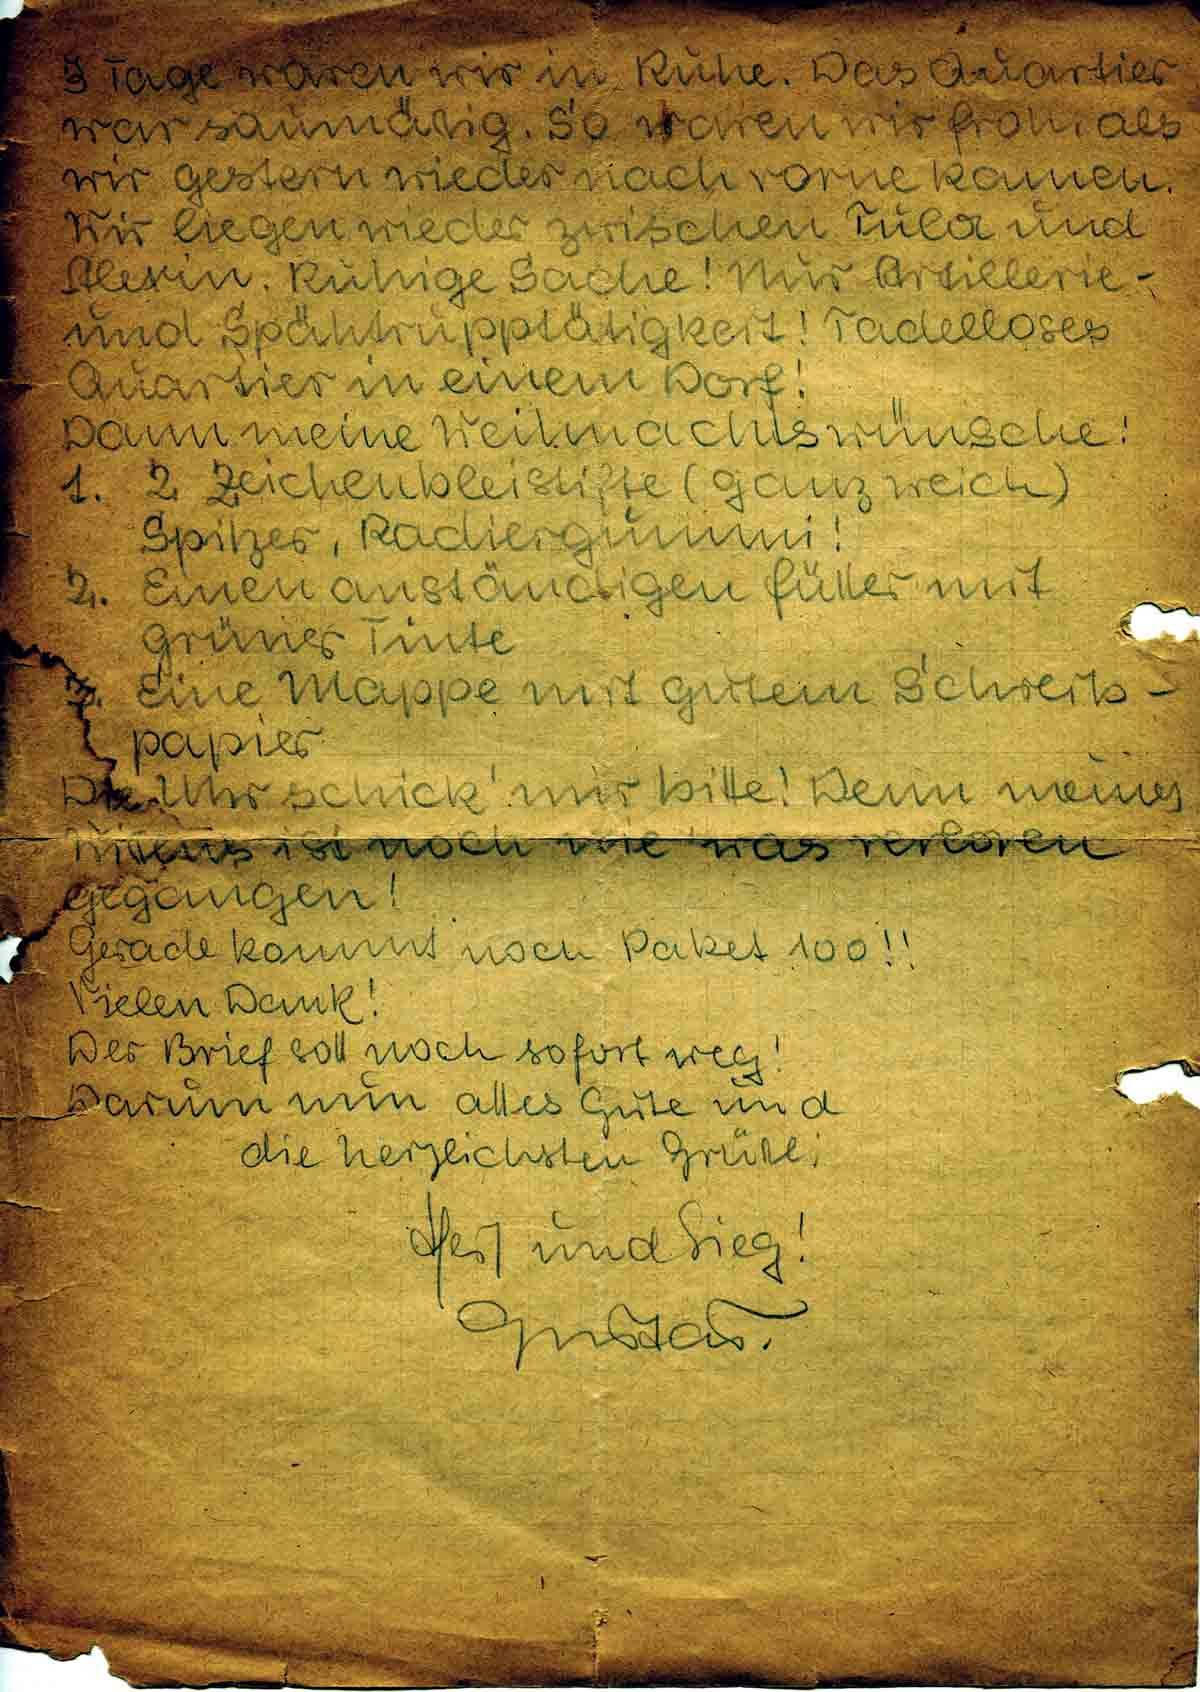 3 Tage waren wir in Ruhe. Das Quartier
war saumäßig. So waren wir froh, als
wir gestern wieder nach vorne kamen.
Wir liegen wieder zwischen Tula und
Alexin. Ruhige Sache! Nur Artillerie-
und Spähtrupptätigkeit! Tadelloses
Quartier in einem Dorf!
Dann meine Weihnachtswünsche!
1. 2 Zeichenbleistifte (ganz weich)
Spitzer, Radiergummi!
2. Einen anständigen Füller mit
grüner Tinte
3. Eine Mappe mit gutem Schreib-
papier
Die Uhr schick' mir bitte! Denn meines
Wissens ist noch nie was verloren
gegangen!
Gerade kommt noch Paket 100!!
Vielen Dank!
Der Brief soll noch sofort weg!
Darum nun alles Gute und
die herzlichsten Grüße.
und Sieg!
Gustav.